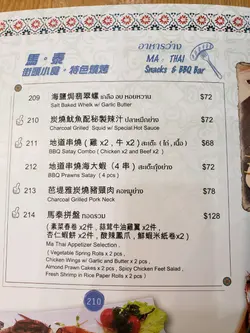 馬·泰
街頭小食·特色燒烤
อาหารว่าง
MA · THAI
Snacks & BBQ Bar
209 海鹽焗翡翠螺 $72
Salt Baked Whelk w/ Garlic Butter
210 炭燒魷魚配秘製辣汁 ปลาหมึกย่าง $72
Charcoal Grilled Squid w/ Special Hot Sauce
211 地道串燒 ( 雞 x2 , 牛 x2 ) สะเต๊ะ ( ไก่ , เนื้อ ) $68
BBQ Satay Combo ( Chicken x2 and Beef x2 )
212 地道串燒海大蝦 ( 4 串 ) สะเต๊ะกุ้งย่าง $72
BBQ Prawns Satay ( 4 pcs )
213 芭堤雅炭燒豬頸肉 คอหมูย่าง $78
Charcoal Grilled Pork Neck
214 馬泰拼盤 ทอดรวม $128
( 素菜春卷 x2件 , 蒜茸牛油雞翼 x2件 ,
杏仁蝦餅 x2件 , 酸辣鳳爪 , 鮮蝦米紙卷x2 )
Ma Thai Appetizer Selection
( Vegetable Spring Rolls x 2 pcs ,
Chicken Wings w/ Garlic and Butter x 2 pcs ,
Almond Prawn Cakes x 2 pcs , Spicy Chicken Feet Salad ,
Fresh Shrimp in Rice Paper Rolls x 2 pcs )
210